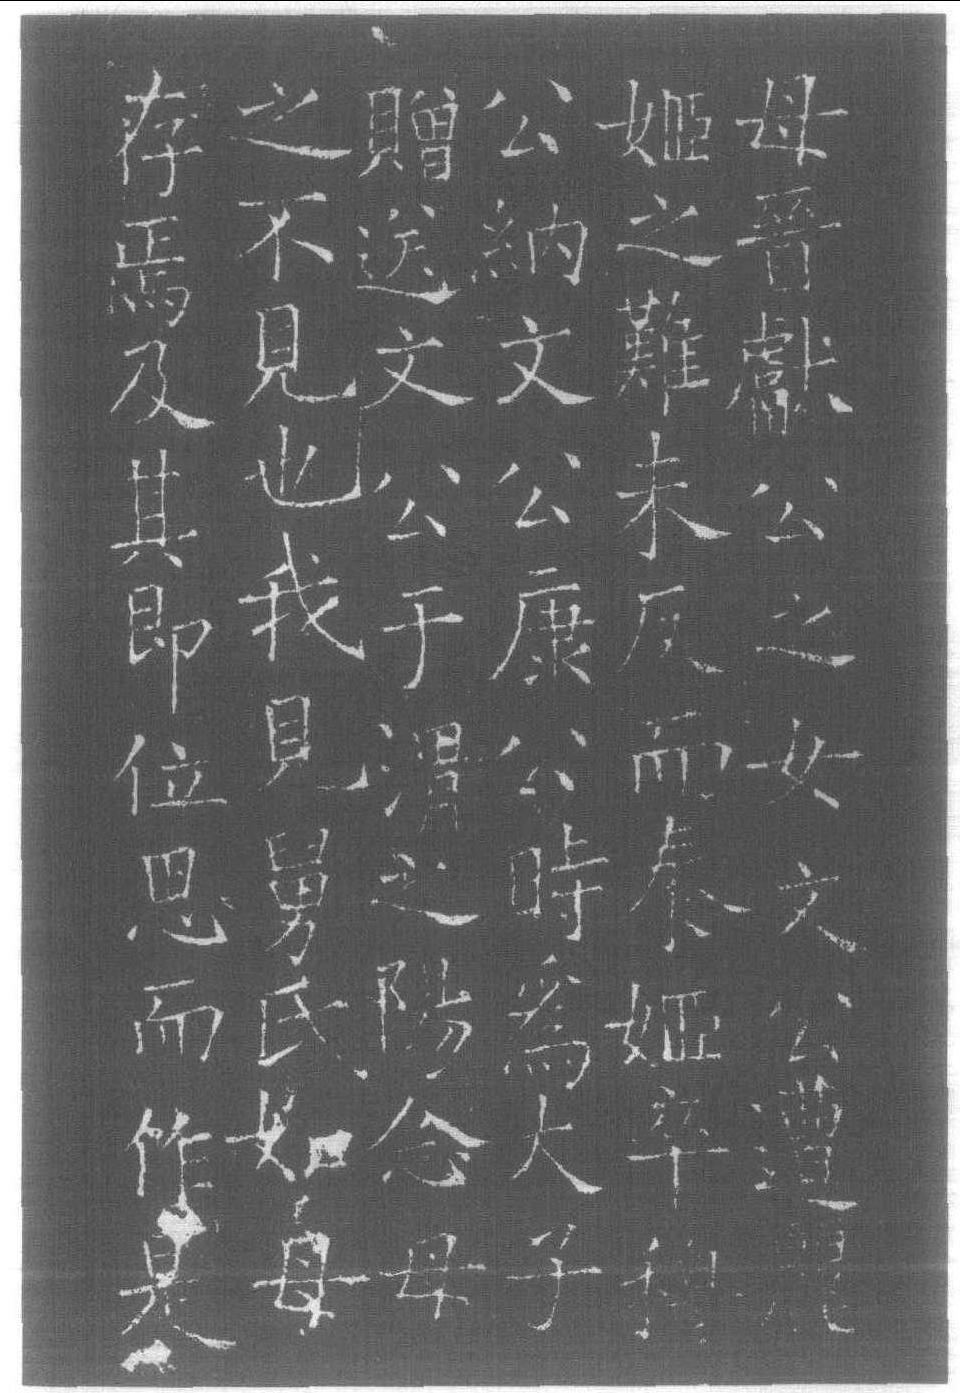 母晉獻公之女文公遭驪
姬之難未反而秦姬卒穆
公納文公康公時爲大子
贈送文公于渭之陽念母
之不見也我見舅氏如母
存焉及其即位思而作是